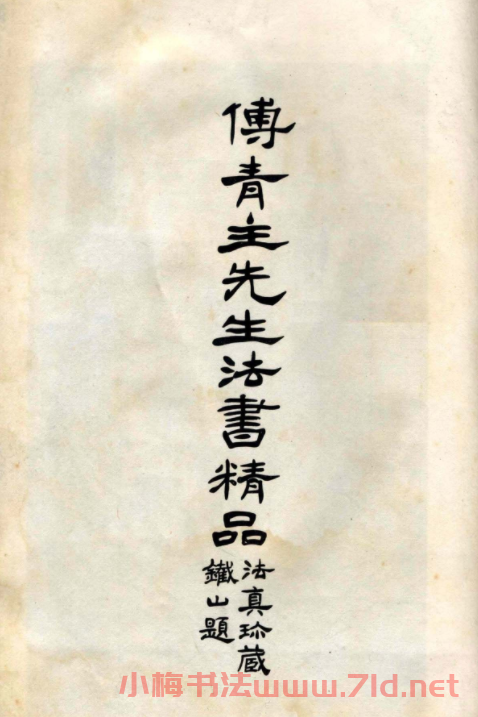 傅青主先生法書精品
法真珍藏
鐵山題
小梅书法www.7ld.net